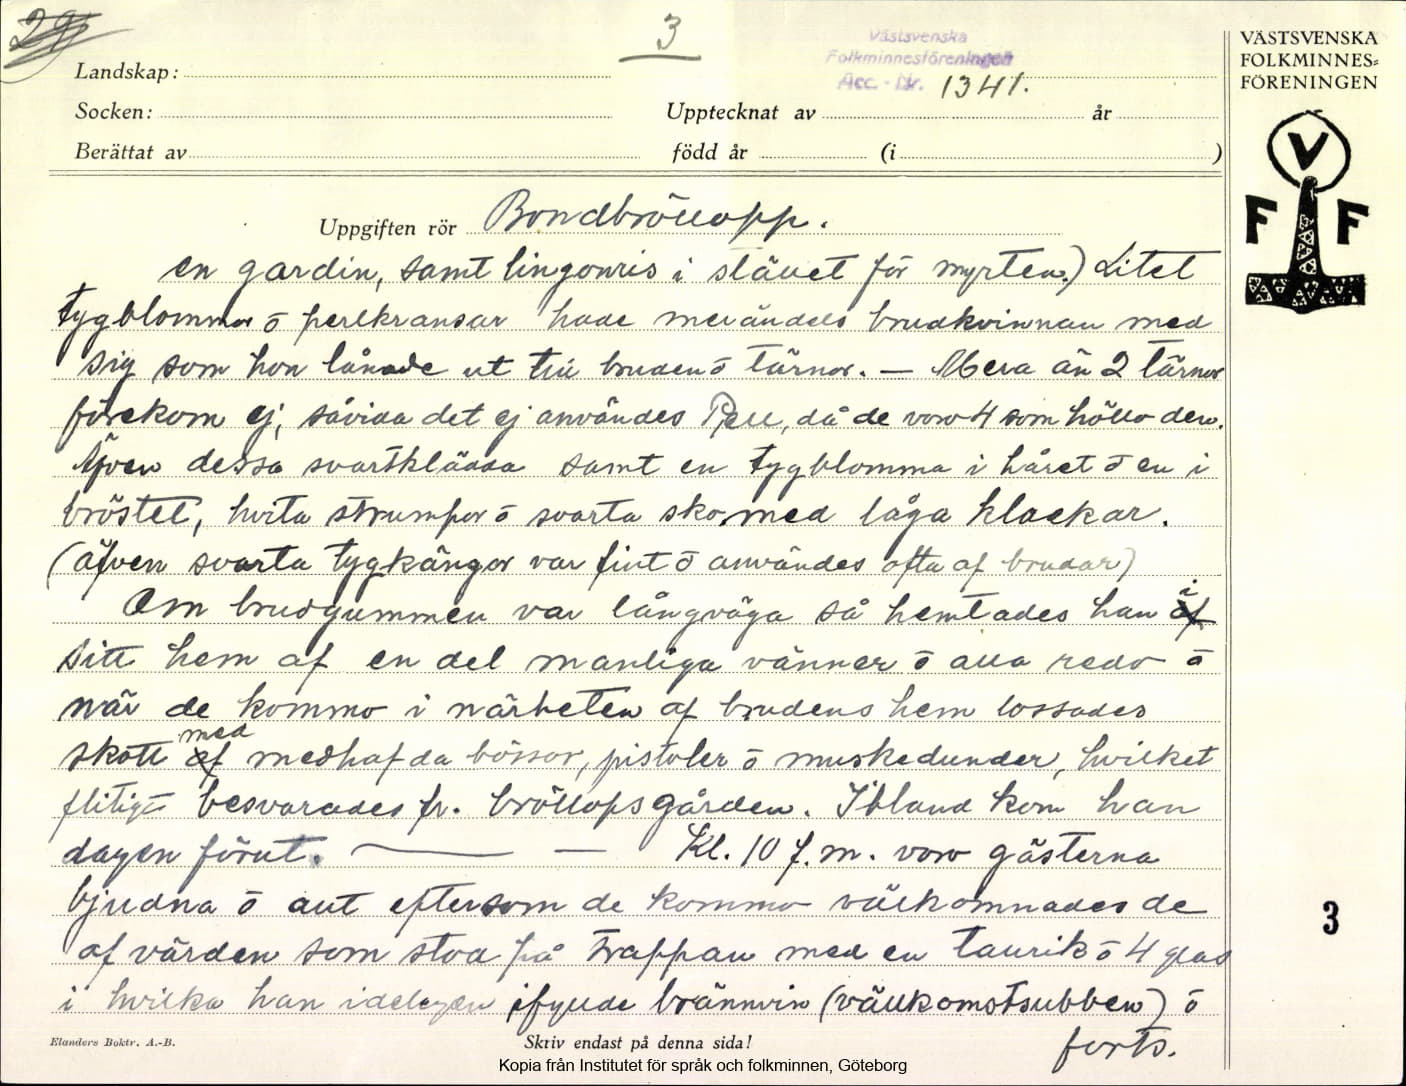 29
3
Västsvenska
Folkminnesföreningen
Acc. - Nr. 1341.
VÄSTSVENSKA
FOLKMINNES=
FÖRENINGEN
V
F F
Landskap:
Socken: Upptecknat av år
Berättat av född år (i )
Uppgiften rör Bondbröllopp.
en gardin, samt lingonris i stället för myrten.) Litet
tygblommor ō perlkransar hade merändels brudkvinnan med
sig som hon lånade ut till bruden ō tärnor. — Mera än 2 tärnor
förekom ej, såvida det ej användes Pell, då de voro 4 som höllo den.
Äfven dessa svartklädda samt en tygblomma i håret ō en i
bröstet, hvita strumpor ō svarta skor med låga klackar.
(äfven svarta tygkängor var fint ō användes ofta af brudar)
Om brudgummen var långväga så hemtades han i
sitt hem af en del manliga vänner ō alla redo ō
när de kommo i närheten af brudens hem lossades
skott med medhafda bössor, pistoler ō muskedunder, hvilket
flitigt besvarades fr. bröllopsgården. Ibland kom han
dagen förut. — — Kl. 10 f.m. voro gästerna
bjudna ō allt eftersom de kommo välkomnades de
af värden som stod på trappan med en tallrik ō 4 glas
i hvilka han idelegen ifyllde brännvin (vällkomstsubben) ō
forts.
3
Elanders Boktr. A.-B.
Skriv endast på denna sida!
Kopia från Institutet för språk och folkminnen, Göteborg